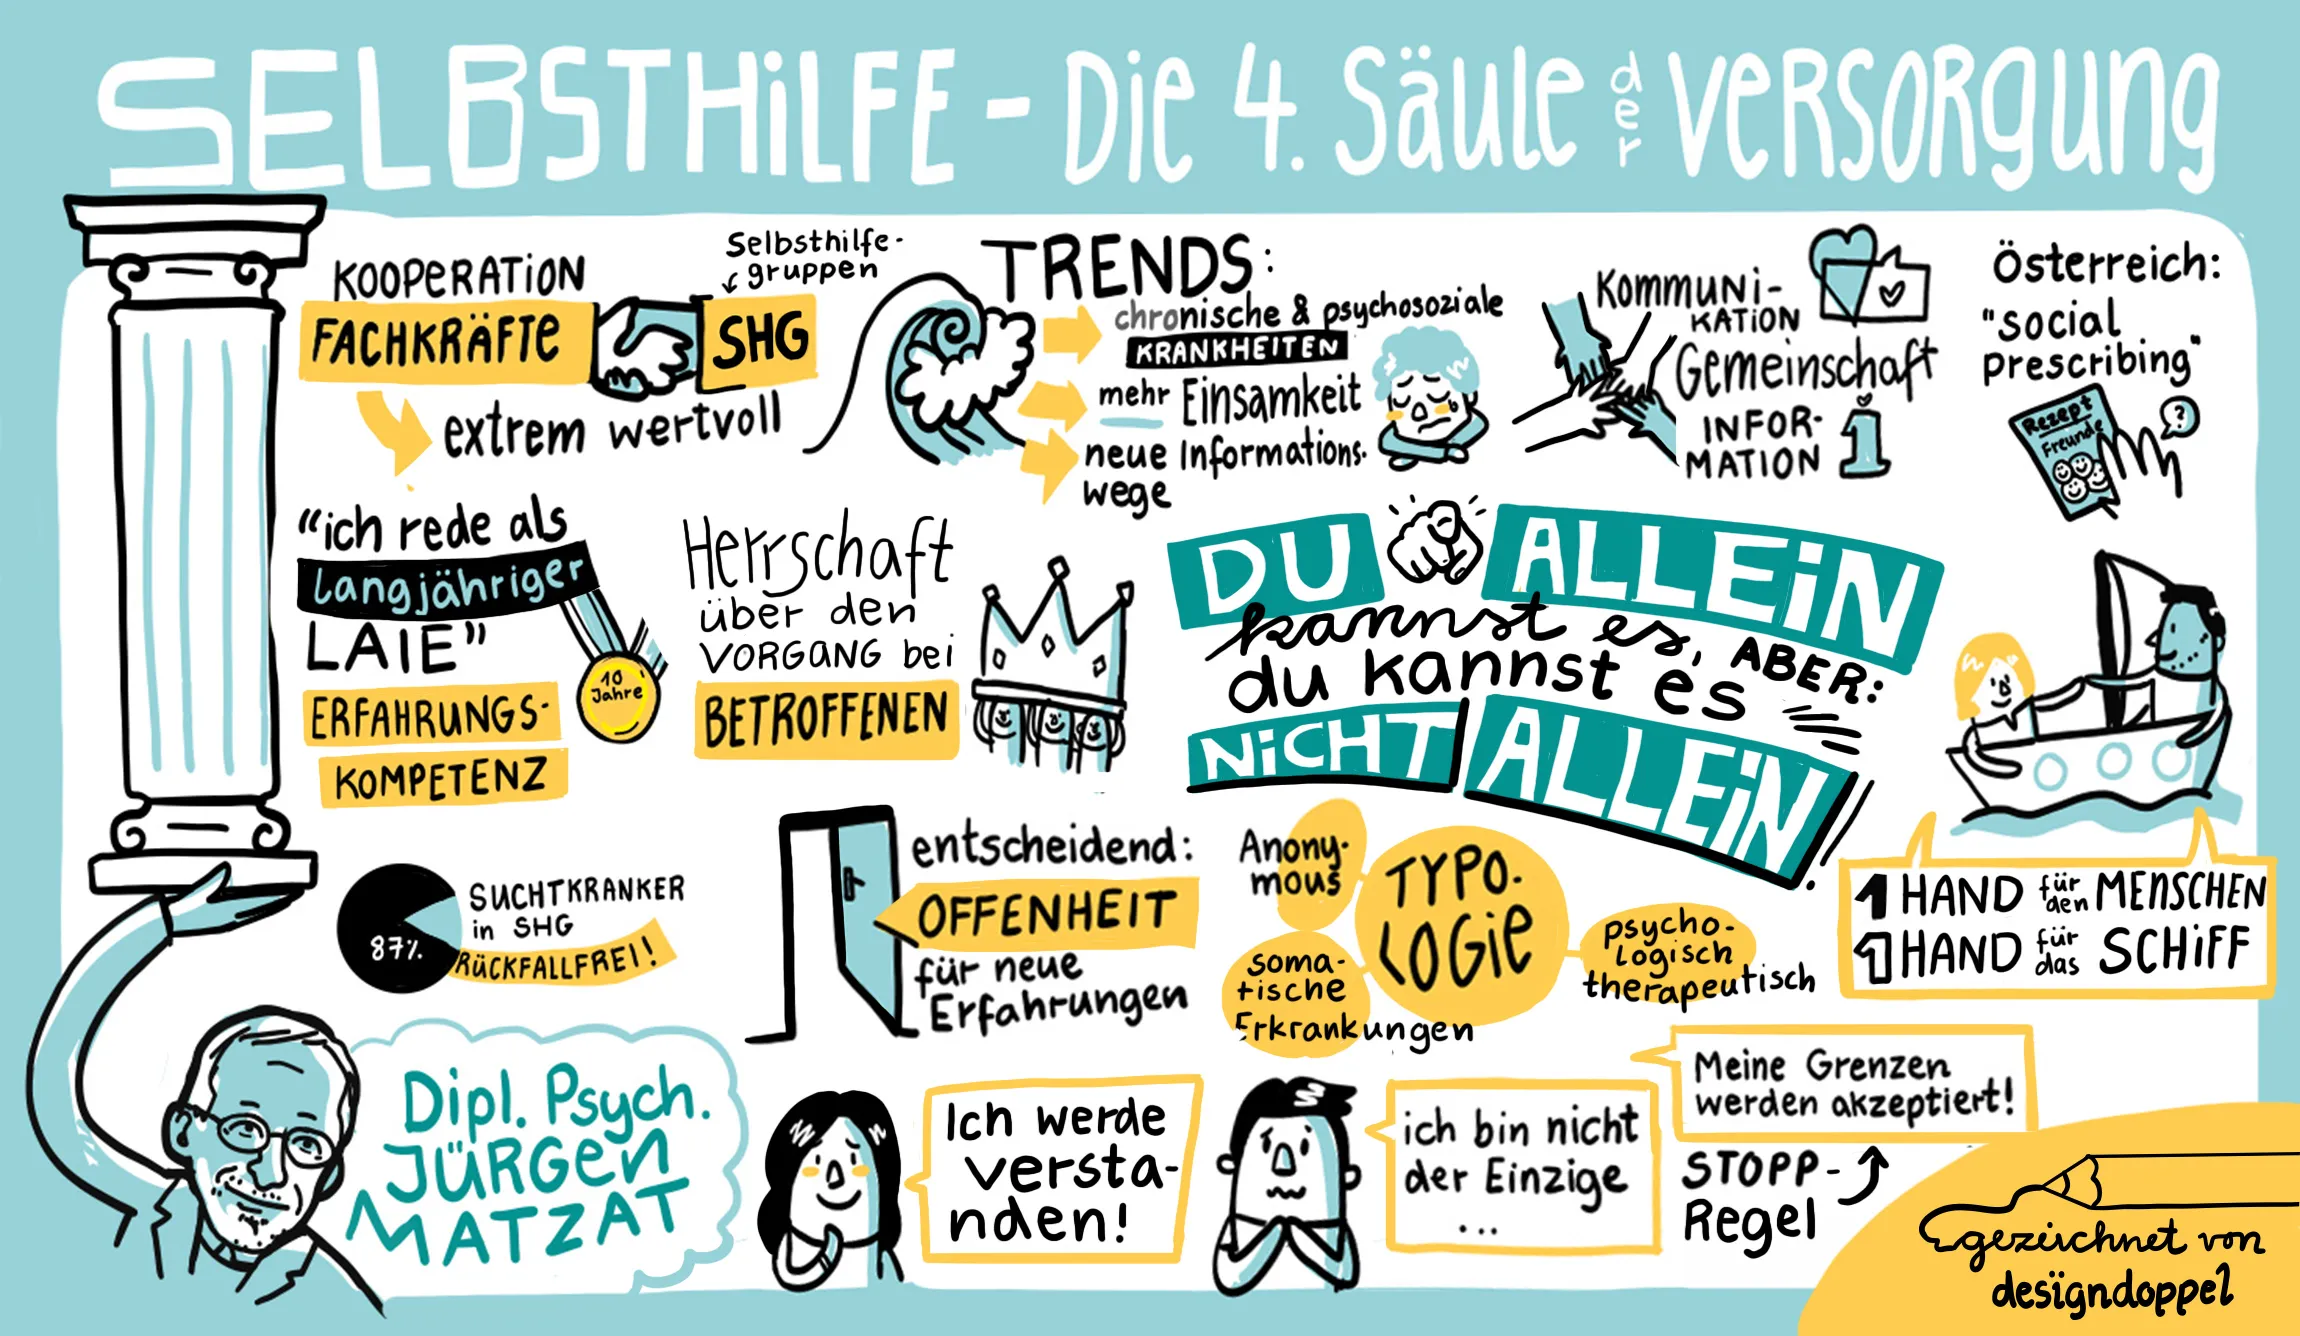 SELBSTHiLFE - Die 4. Säule der VERSORgung
KOOPERATiON
FACHKRÄFTE
Selbsthilfe-
gruppen
SHG
extrem wertvoll
TRENDS:
chronische & psychosoziale
KRANKHEITEN
mehr Einsamkeit
neue Informations-
wege
KommuNi-
KATiON
Gemeinschaft
INFOR-
MATION
1
Österreich:
"social
prescribing"
Rezept
Freunde
?
"ich rede als
langjähriger
LAIE"
10
Jahre
ERFAHRUNGS-
KOMPETENZ
Herrschaft
über den
VORGANG bei
BETROFFENEN
DU ALLEiN
kannst es, ABER:
du kannst es
NiCHT ALLEiN!
1 HAND für den MENSCHEN
1 HAND für das SCHiFF
87%
SUCHTKRANKER
in SHG
RÜCKFALLFREI!
entscheidend:
OFFENHEIT
für neue
Erfahrungen
Anony-
mous
TYPO-
LOGiE
soma-
tische
Erkrankungen
psycho-
logisch
therapeutisch
Dipl. Psych.
JÜRGEN
MATZAT
Ich werde
versta-
nden!
ich bin nicht
der Einzige
...
Meine Grenzen
werden akzeptiert!
STOPP-
Regel
gezeichnet von
designdoppel